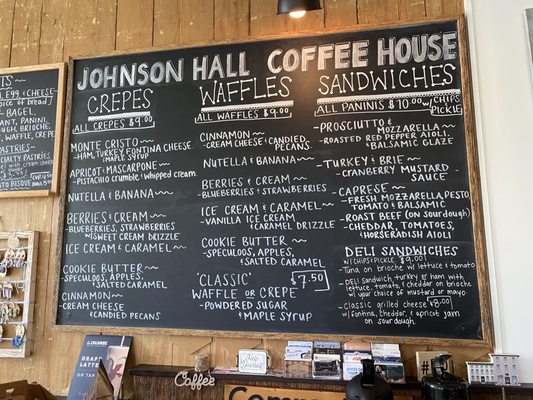 JOHNSON HALL COFFEE HOUSE
CREPES
ALL CREPES $9.00
MONTE CRISTO
-HAM, TURKEY, FONTINA CHEESE
& MAPLE SYRUP
APRICOT & MASCARPONE
-PISTACHIO CRUMBLE & whipped cream
NUTELLA & BANANA
BERRIES & CREAM
-BLUEBERRIES, STRAWBERRIES
w/SWEET CREAM DRIZZLE
ICE CREAM & CARAMEL
COOKIE BUTTER
-SPECULOOS, APPLES,
& SALTED CARAMEL
CINNAMON
-CREAM CHEESE
& CANDIED PECANS
WAFFLES
ALL WAFFLES $9.00
CINNAMON
-CREAM CHEESE & CANDIED
PECANS
NUTELLA & BANANA
BERRIES & CREAM
-BLUEBERRIES & STRAWBERRIES
ICE CREAM & CARAMEL
-VANILLA ICE CREAM
& CARAMEL DRIZZLE
COOKIE BUTTER
-SPECULOOS, APPLES,
& SALTED CARAMEL
"CLASSIC" $7.50
WAFFLE OR CREPE
-POWDERED SUGAR
& MAPLE SYRUP
SANDWICHES
ALL PANINIS $10.00 w/CHIPS
& PICKLE
-PROSCIUTTO &
MOZZARELLA
-ROASTED RED PEPPER AIOLI
& BALSAMIC GLAZE
-TURKEY & BRIE
-CRANBERRY MUSTARD
SAUCE
-CAPRESE
-FRESH MOZZARELLA, PESTO
TOMATO & BALSAMIC
-ROAST BEEF (ON sourdough)
-CHEDDAR, TOMATOES,
& HORSERADISH AIOLI
DELI SANDWICHES
w/CHIPS & PICKLE, $9.00
-Tuna on brioche w/ lettuce & tomato
-Deli Sandwich: turkey or ham with
lettuce, tomato, & cheddar on brioche
w/ your choice of mustard or mayo.
-classic grilled cheese $8.00
w/ Fontina, cheddar, & apricot jam
on sourdough.
EGG & CHEESE
choice of bread)
-BAGEL,
PANINI,
BRIOCHE,
WAFFLE, CREPE
PASTRIES
LA COLOMBE
DRAFT
LATTE
Coffee
Help
Yourself